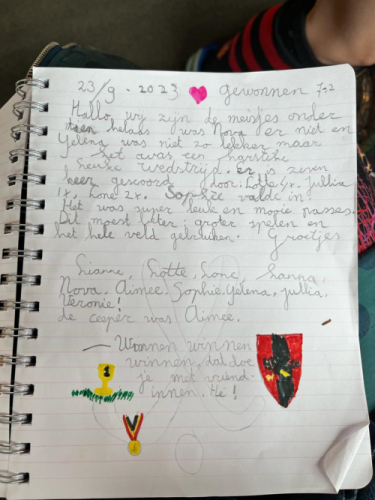 23/9. 2023 gewonnen 7-2
Hallo, wy zijn de meisjes onder
tien helaas was Nova er niet en
Yelena was niet zo lekker maar
het was een harstike
leuke wedstrijd. er is zeven
keer gescoord door: Lotte 4x. Jullia
1x, Lonc 2x. Sophie valde in.
Het was super leuk en mooie passes.
Dit moest beter: groter spelen en
het hele veld gebruiken. Groetjes
Lianne, Lotte, Lonc, Sanna,
Nova. Aimee. Sophie, Yelena, jullia,
Veronie!
de ceeper was Aimee.
– Winnen winnen
winnen, dat doe
je met vriend-
innen. Hé!
1